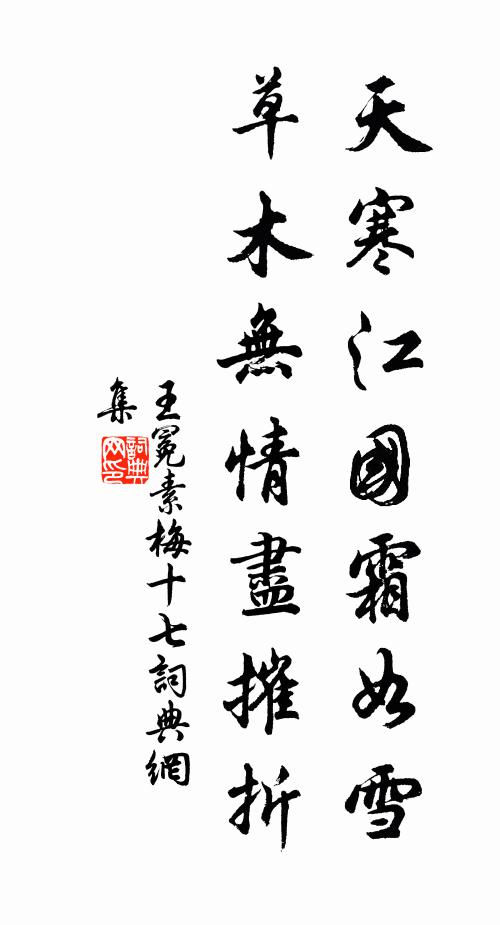 天寒江國霜如雪
草木無情盡摧折
王冕素梅十七詞典網
集
詞典網印